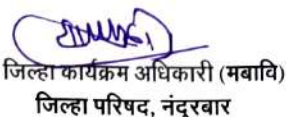 जिल्हा कार्यक्रम अधिकारी (मबावि)
जिल्हा परिषद, नंदूरबार